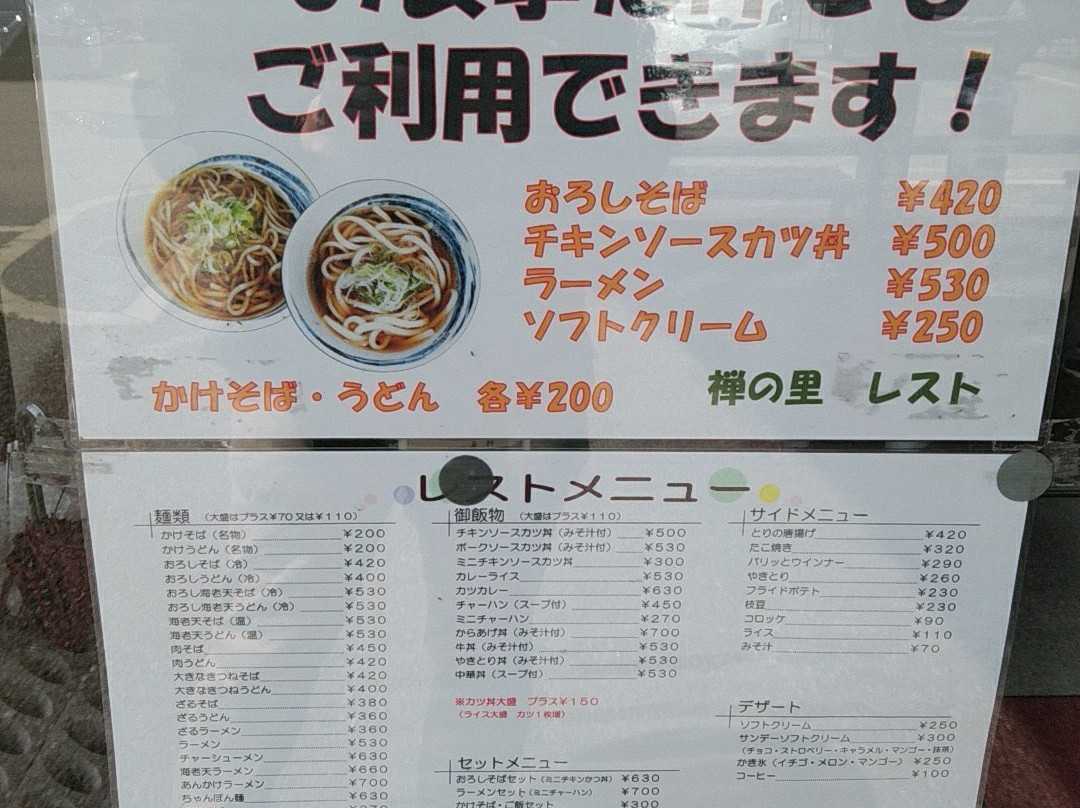 ご利用できます！
おろしそば ￥420
チキンソースカツ丼 ￥500
ラーメン ￥530
ソフトクリーム ￥250
かけそば・うどん 各￥200
禅の里 レスト
レストメニュー
麺類 （大盛はプラス￥70又は￥110）
かけそば（名物） ￥200
かけうどん（名物） ￥200
おろしそば（冷） ￥420
おろしうどん（冷） ￥400
おろし海老天そば（冷） ￥530
おろし海老天うどん（冷） ￥530
海老天そば（温） ￥530
海老天うどん（温） ￥530
肉そば ￥450
肉うどん ￥420
大きなきつねそば ￥420
大きなきつねうどん ￥400
ざるそば ￥380
ざるうどん ￥360
ざるラーメン ￥360
ラーメン ￥530
チャーシューメン ￥630
海老天ラーメン ￥660
あんかけラーメン ￥700
ちゃんぽん麺 ￥630
御飯物 （大盛はプラス￥110）
チキンソースカツ丼（みそ汁付） ￥500
ポークソースカツ丼（みそ汁付） ￥530
ミニチキンソースカツ丼 ￥300
カレーライス ￥530
カツカレー ￥630
チャーハン（スープ付） ￥450
ミニチャーハン ￥270
からあげ丼（みそ汁付） ￥700
牛丼（みそ汁付） ￥530
やきとり丼（みそ汁付） ￥530
中華丼（スープ付） ￥530
※カツ丼大盛 プラス￥150
（ライス大盛 カツ1枚増）
セットメニュー
おろしそばセット（ミニチキンかつ丼） ￥630
ラーメンセット（ミニチャーハン） ￥700
かけそば・ご飯セット ￥300
サイドメニュー
とりの唐揚げ ￥420
たこ焼き ￥320
パリッとウインナー ￥290
やきとり ￥260
フライドポテト ￥230
枝豆 ￥230
コロッケ ￥90
ライス ￥110
みそ汁 ￥70
デザート
ソフトクリーム ￥250
サンデーソフトクリーム ￥300
（チョコ・ストロベリー・キャラメル・マンゴー・抹茶）
かき氷（イチゴ・メロン・マンゴー） ￥250
コーヒー ￥100